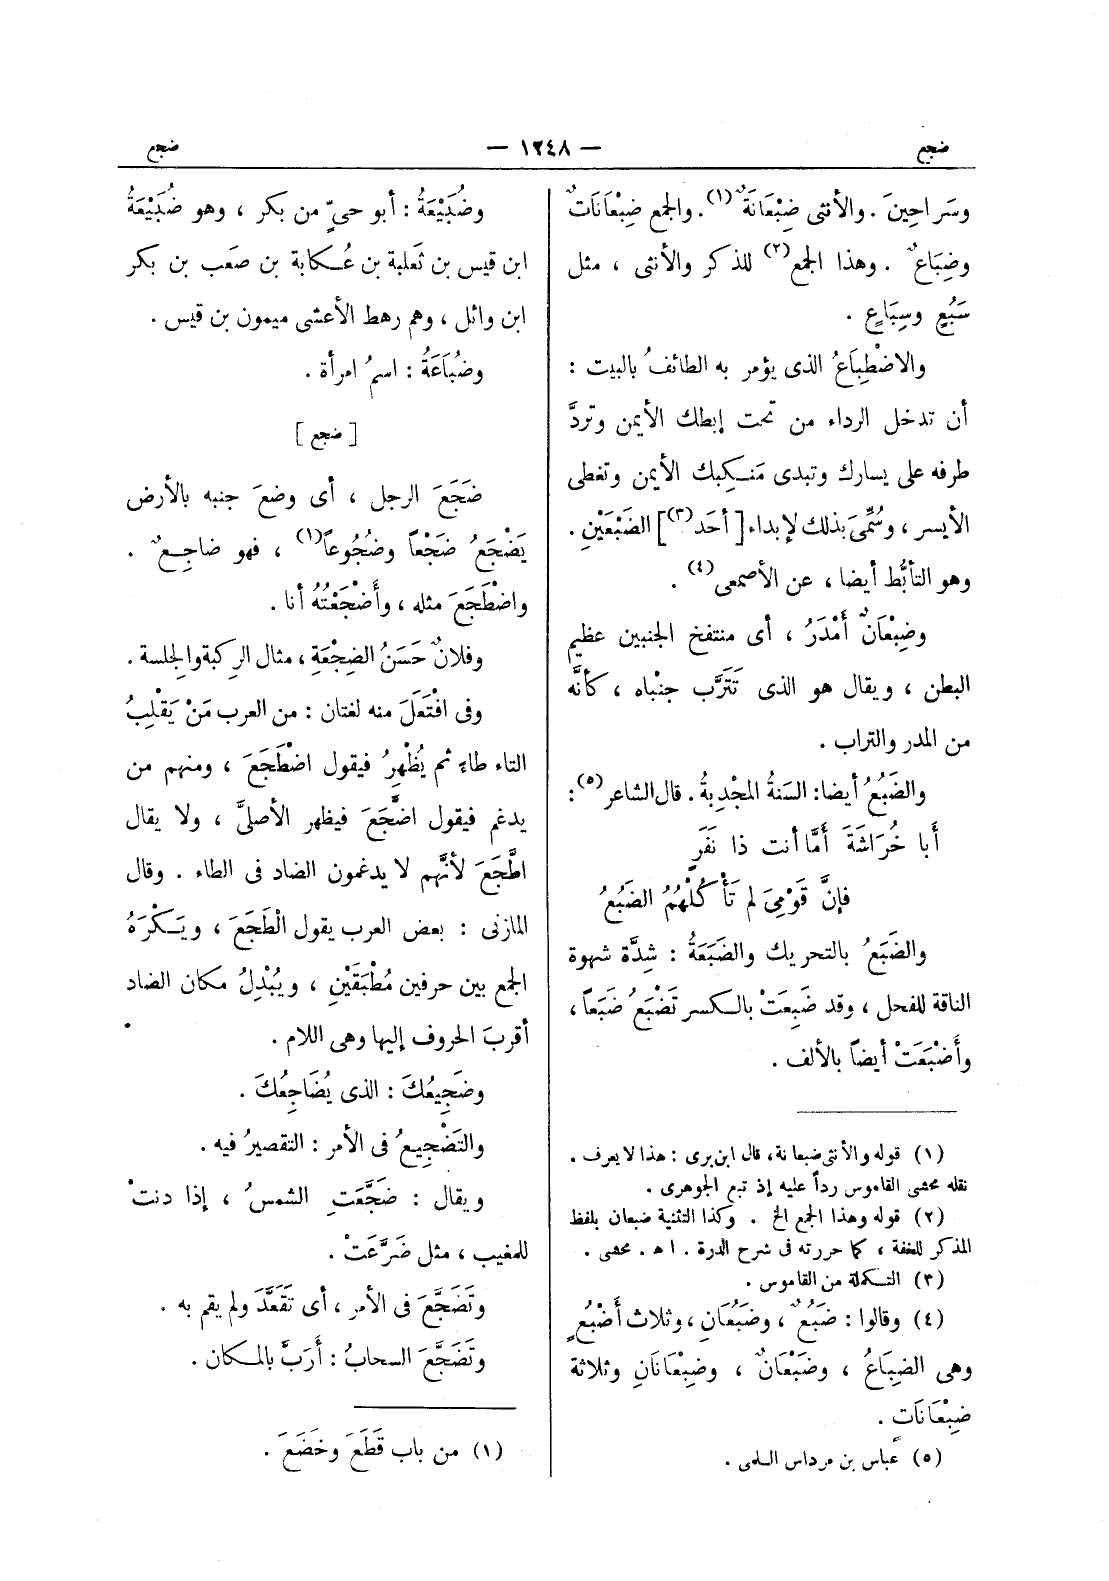 ضجع
— ١٢٤٨ —
ضجع
وسَراحِينَ . والأنثى ضِبْعَانَةٌ(١) . والجمع ضِبْعَانَاتٌ
وضِبَاعٌ . وهذا الجمع(٢) للذكر والأنثى ، مثل
سَبُعٍ وسِبَاعٍ .
والاضْطِباَعُ الذى يؤمر به الطائفُ بالبيت :
أن تدخل الرداء من تحت إبطك الأيمن وتردَّ
طرفه على يسارك وتبدى مَنكِبك الأيمن وتغطى
الأيسر ، وسُمِّىَ بذلك لإبداء [ أحَد(٣) ] الضَبْعَيْنِ .
وهو التأبُّط أيضا ، عن الأصمعى(٤) .
وضِبْعَانٌ أَمْدَرُ ، أى منتفخ الجنبين عظيم
البطن ، ويقال هو الذى تَتَرَّب جنْباه ، كأنَّه
من المدر والتراب .
والضَبُعُ أيضا : السَنةُ المجْدِبةُ . قال الشاعر(٥) :
أَبا خُرَاشَةَ أَمَّا أنت ذا نَفَرٍ
فإنَّ قَوْمِىَ لم تَأْكُلْهُمُ الضَبُعُ
والضَبَعُ بالتحريك والضَبَعَةُ : شِدَّة شهوة
الناقة للفحل ، وقد ضَبِعَتْ بالكسر تَضْبَعُ ضَبَعاً ،
وأَضْبَعَتْ أيضاً بالألف .
(١) قوله والأنثى ضبعانة ، قال ابن برى : هذا لا يعرف .
نقله محشى القاموس رداً عليه إذ تبع الجوهرى .
(٢) قوله وهذا الجمع الخ . وكذا التثنية ضبعان بلفظ
المذكر للخفة ، كما حررته فى شرح الدرة . اه . محشى .
(٣) التكملة من القاموس .
(٤) وقالوا : ضَبُعٌ ، وضَبُعَانِ ، وثلاث أَضْبُعٍ
وهى الضِبَاعُ ، وضَبْعَانٌ ، وضِبْعَانَانِ وثلاثة
ضِبْعَانَاتٍ .
(٥) عباس بن مرداس السلمى .
وضُبَيْعَةُ : أبو حىٍّ من بكر ، وهو ضُبَيْعَةُ
ابن قيس بن ثعلبة بن عُكابة بن صعب بن بكر
ابن وائل ، وهم رهط الأعشى ميمون بن قيس .
وضُبَاعَةُ : اسمُ امرأة .
[ ضجع ]
ضَجَعَ الرجل ، أى وضعَ جنبه بالأرض
يَضْجَعُ ضَجْعاً وضُجُوعاً(١) ، فهو ضاجِعٌ .
واضْطَجَعَ مثله ، وأَضْجَعْتُهُ أنا .
وفلانٌ حَسَنُ الضِجْعَةِ ، مثال الرِكبة والجِلسة .
وفى افْتَعَلَ منه لغتان : من العرب مَنْ يَقْلِبُ
التاء طاءً ثم يُظْهِرُ فيقول اضْطَجَعَ ، ومنهم من
يدغم فيقول اضَّجَعَ فيظهر الأصلىَّ ، ولا يقال
اطَّجَعَ لأنَّهم لا يدغمون الضاد فى الطاء . وقال
المازنى : بعض العرب يقول الْطَجَعَ ، ويَكْرَهُ
الجمع بين حرفين مُطْبَقَيْنِ ، ويُبْدِلُ مكان الضاد
أقربَ الحروف إليها وهى اللام .
وضَجِيعُكَ : الذى يُضَاجِعُكَ .
والتَضْجِيعُ فى الأمر : التقصيرُ فيه .
ويقال : ضَجَّعَتِ الشمسُ ، إذا دنتْ
للمغيب ، مثل ضَرَّعَتْ .
وتَضَجَّعَ فى الأمر ، أى تَقَعَّدَ ولم يقم به .
وتَضَجَّعَ السحابُ : أَرَبَّ بالمكان .
(١) من باب قَطَعَ وخَضَعَ .